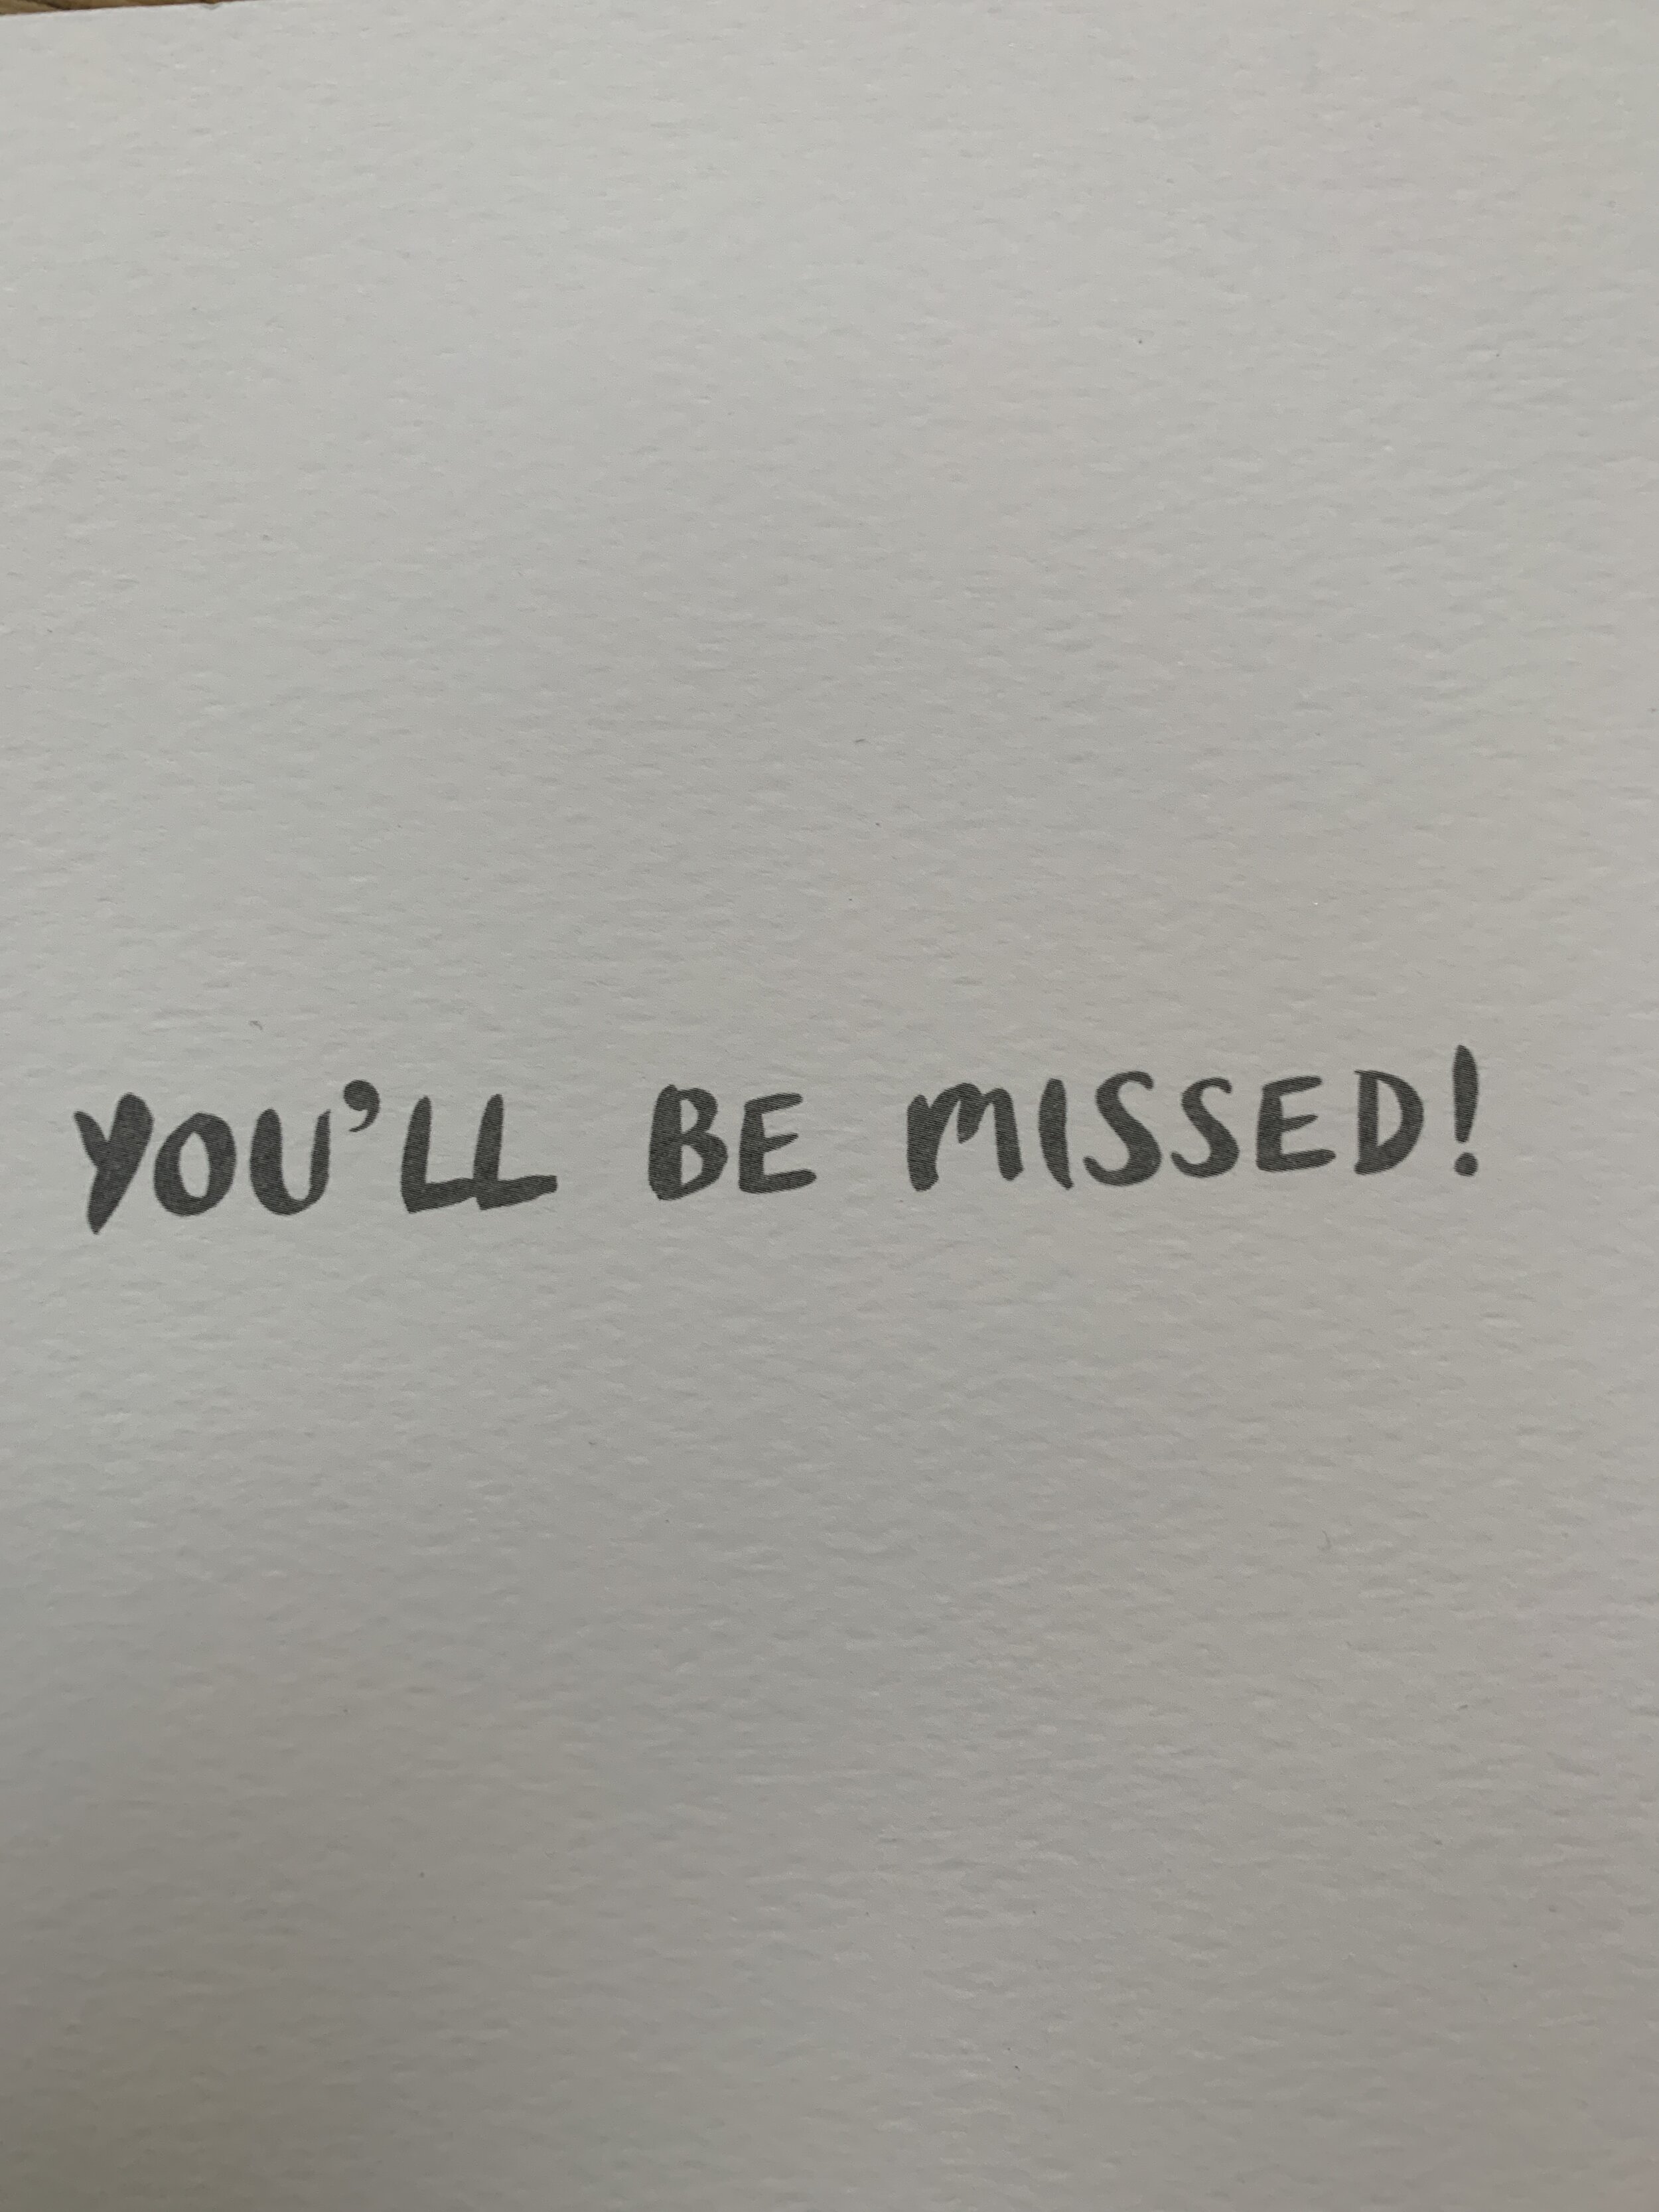 YOU'LL BE MISSED!